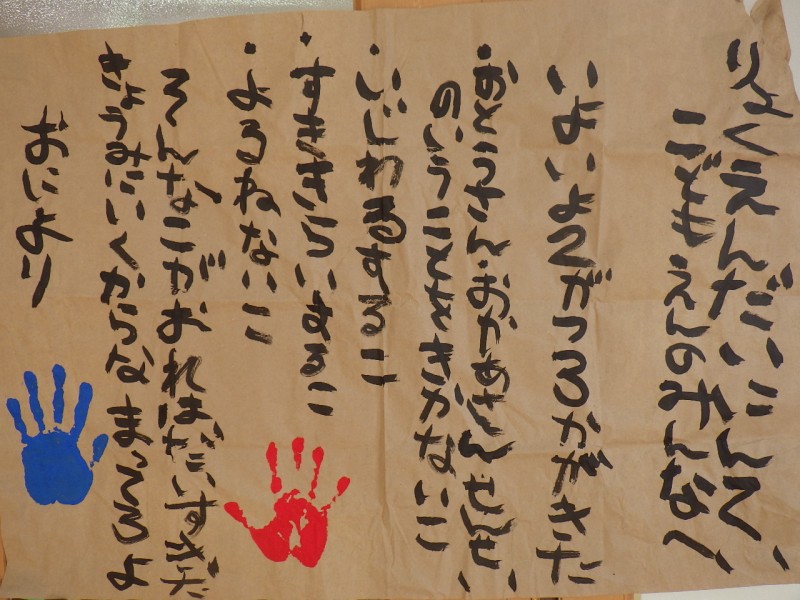 りょくえんだい
こどもえんのみんなへ
いよいよ2がつ3かがきた
・おとうさん・おかあさん・せんせい
のいうことをきかないこ
・いじわるするこ
・すききらいするこ
・よるねないこ
そんなこがおれはだいすきだ
きょうみにいくからな まってろよ
おにより